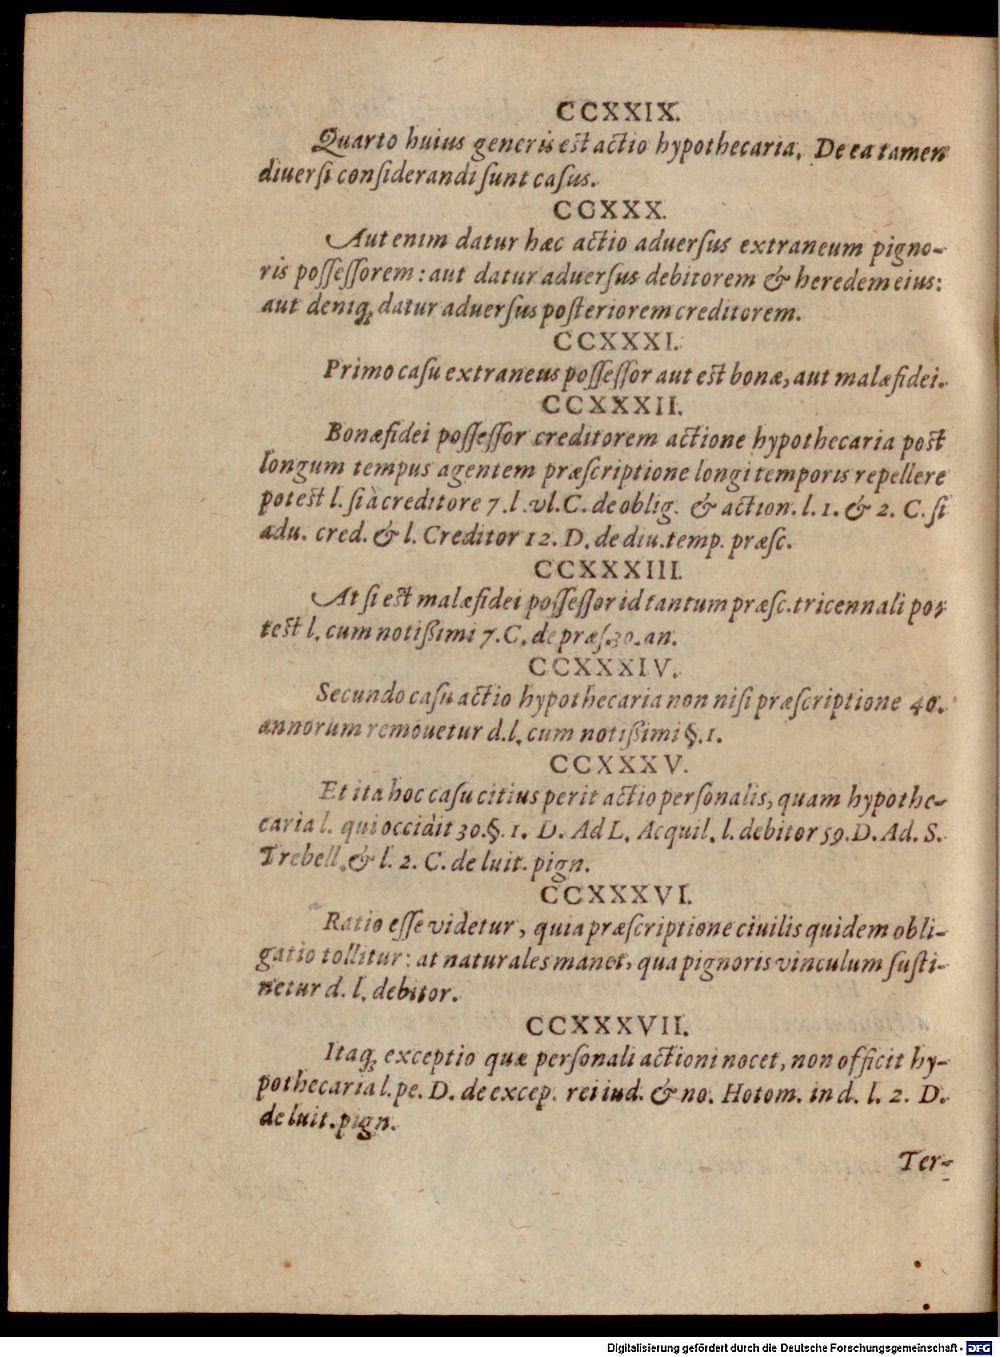 CCXXIX.
Quarto huius generis est actio hypothecaria, De ea tamen
diuersi considerandi sunt casus.
CCXXX.
Aut enim datur hæc actio aduersus extraneum pigno-
ris possessorem: aut datur aduersus debitorem & heredem eius:
aut deniq; datur aduersus posteriorem creditorem.
CCXXXI.
Primo casu extraneus possessor aut est bonæ, aut malæ fidei.
CCXXXII.
Bonæ fidei possessor creditorem actione hypothecaria post
longum tempus agentem præscriptione longi temporis repellere
potest l. si à creditore 7. l. vl. C. de oblig. & action. l. 1. & 2. C. si
adu. cred. & l. Creditor 12. D. de diu. temp. præsc.
CCXXXIII.
At si est malæ fidei possessor id tantum præsc. tricennali po-
test l. cum notißimi 7. C. de præs. 30. an.
CCXXXIV.
Secundo casu actio hypothecaria non nisi præscriptione 40.
annorum remouetur d. l. cum notißimi §. 1.
CCXXXV.
Et ita hoc casu citius perit actio personalis, quam hypothe-
caria l. qui occidit 30. §. 1. D. Ad L. Acquil. l. debitor 59. D. Ad. S.
Trebell. & l. 2. C. de luit. pign.
CCXXXVI.
Ratio esse videtur, quia præscriptione ciuilis quidem obli-
gatio tollitur: at naturales manet, qua pignoris vinculum susti-
netur d. l. debitor.
CCXXXVII.
Itaq; exceptio quæ personali actioni nocet, non officit hy-
pothecaria l. pe. D. de excep. rei iud. & no. Hotom. in d. l. 2. D.
de luit. pign.
Ter-
Digitalisierung gefördert durch die Deutsche Forschungsgemeinschaft - DFG